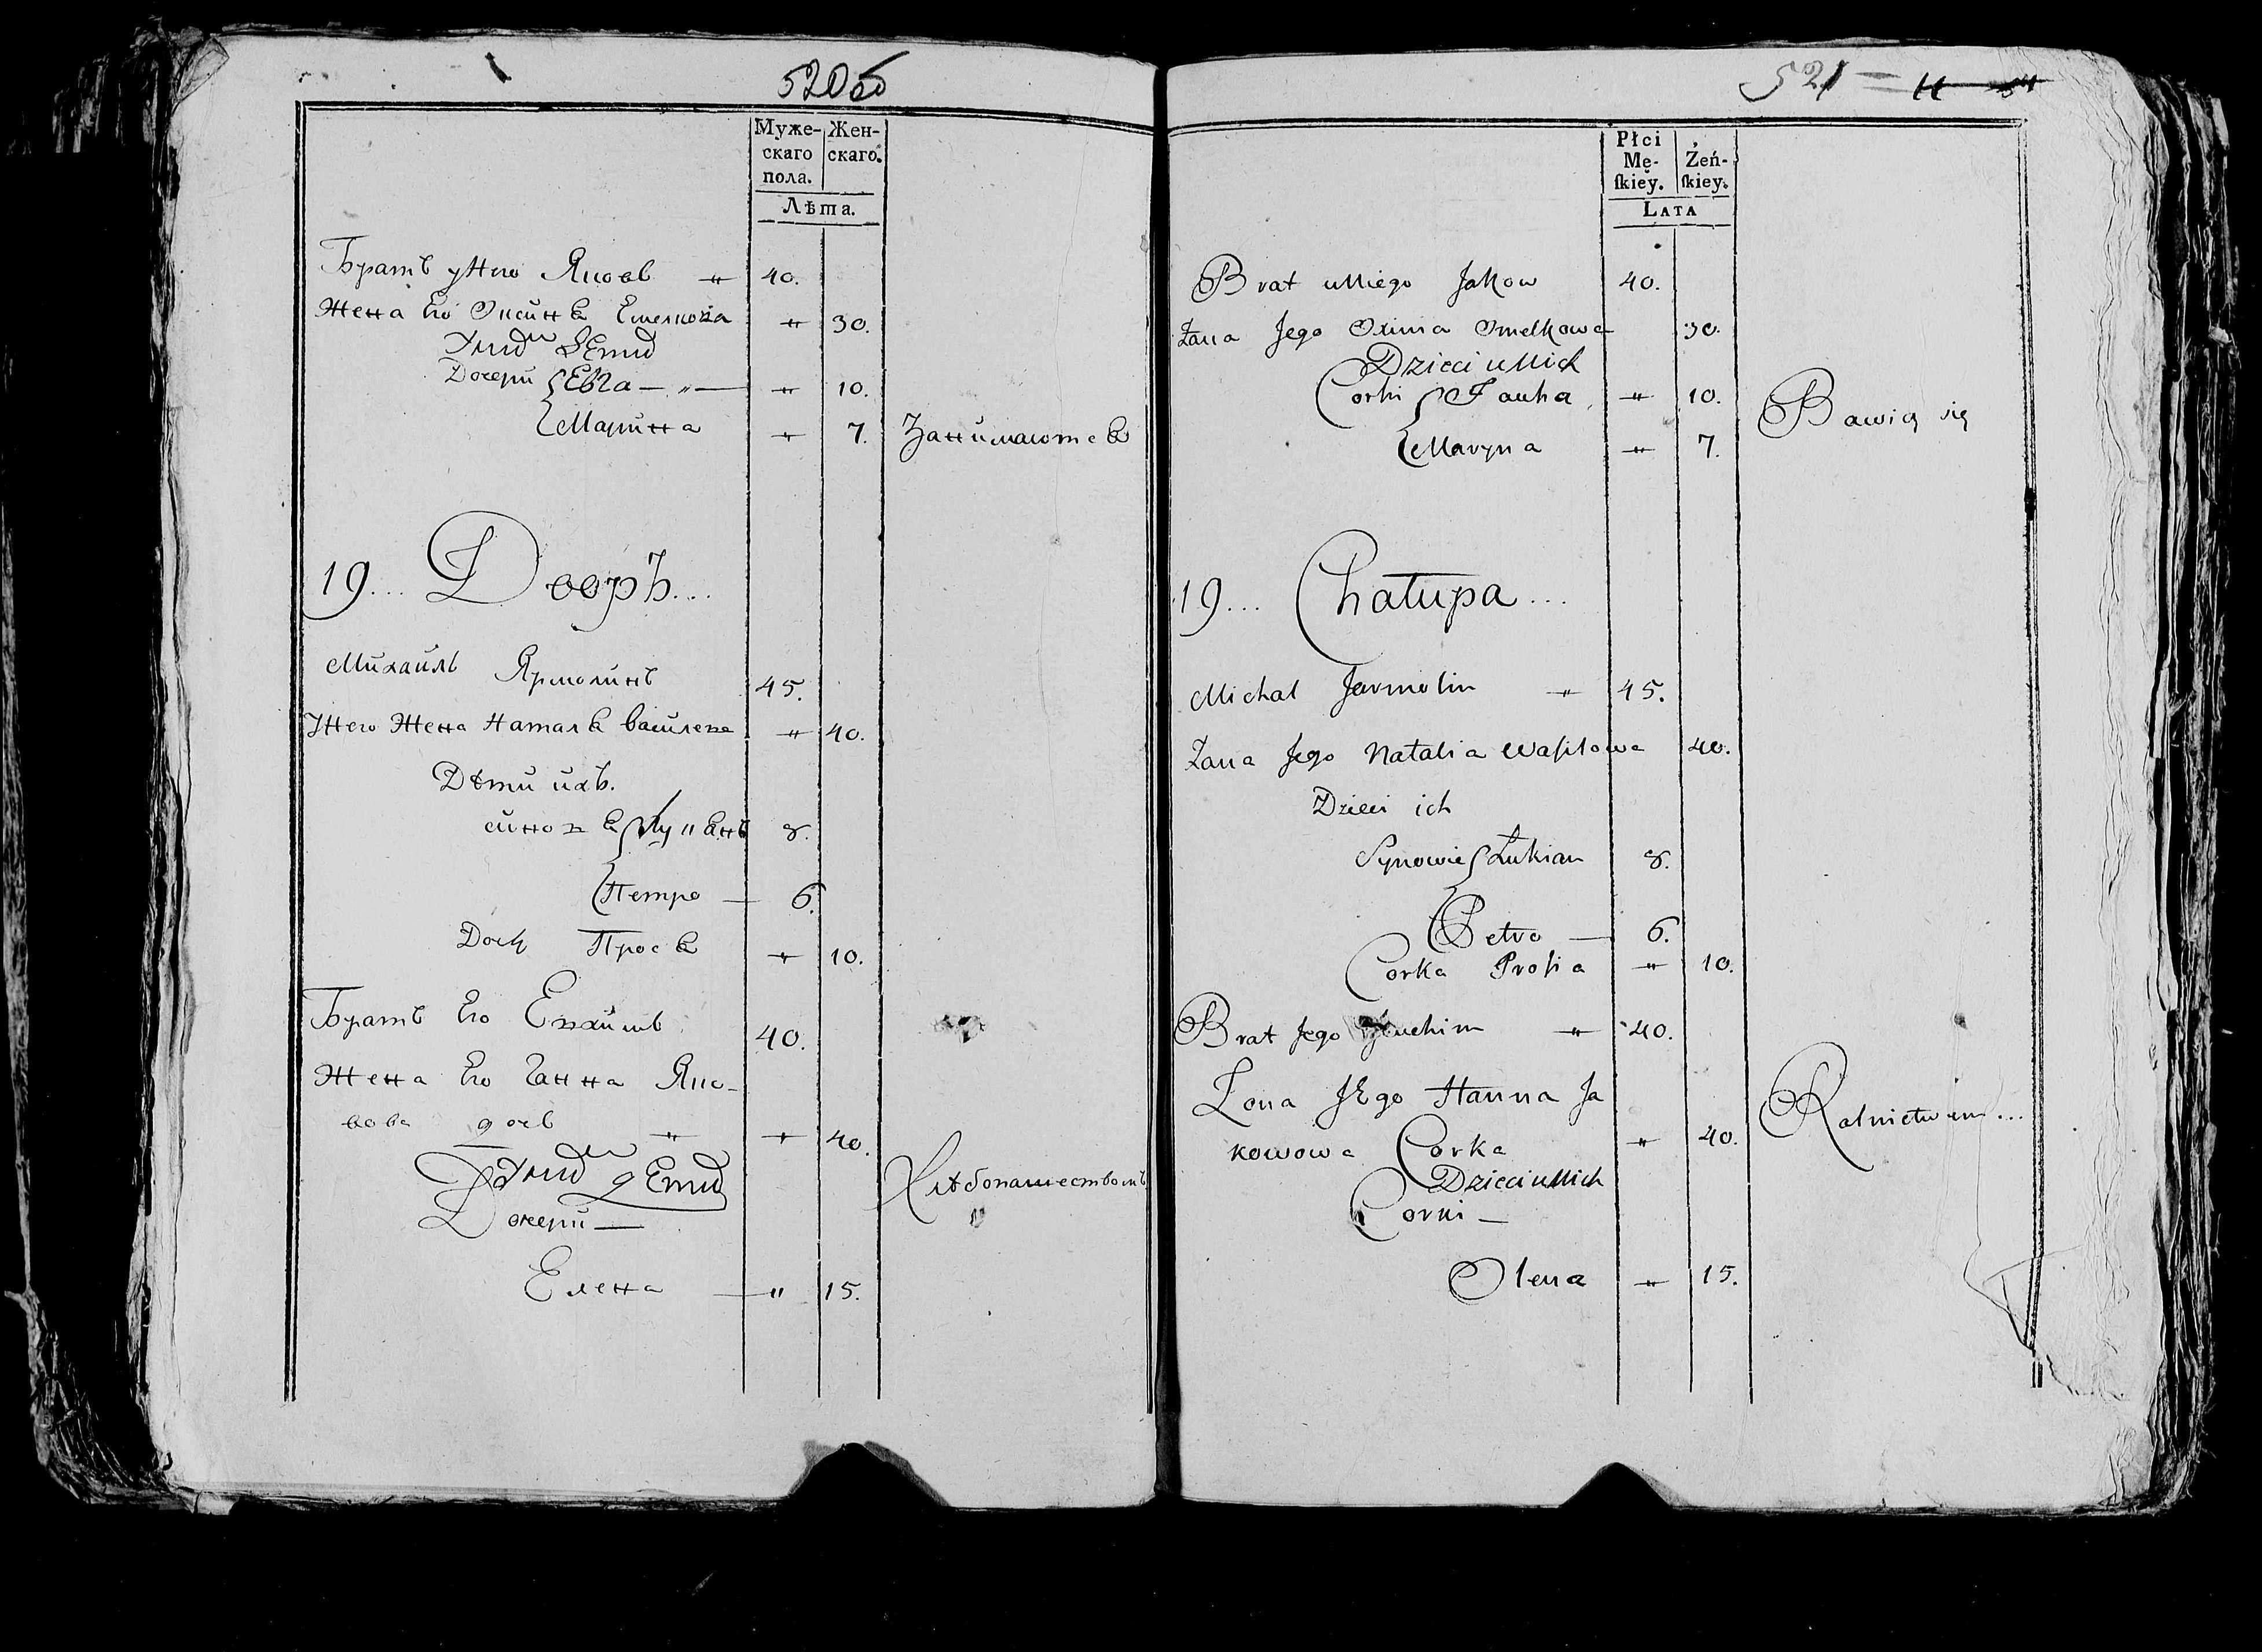 520об
Муже- Жен-
скаго скаго.
пола.
Лѣта.
Братъ у Него Яковъ " 40.
Жена Его Ѡксинѣ Емелкова " 30.
У нид
Дочери Евга " 10.
Марина " 7. Занимаются
19... Дворъ...
Михаилъ Ярмолинъ 45.
Жена Наталѣ Василева " 40.
Дѣти ихъ.
Лукянъ 8.
Петро 6.
Дочь Прося " 10.
Братъ Его Евхимъ 40.
Жена Его Ганна Яко-
вова дочь " 40.
Хлѣбопашествомъ
Дочери
Елена " 15.
521 11
Płci
Mę- Żeń-
skiey. skiey.
LATA
Brat u Niego Jakow 40.
Żana Jego Oxinia Omelkowa 30.
Dzieci u Nich
Corki Jauha " 10.
Bawią się
Maryna " 7.
19... Chałupa...
Michał Jarmolin " 45.
Żana Jego Natalia Wasilowa 40.
Dzieci ich
Synowie Łukian 8.
Petro 6.
Corka Prosia " 10.
Brat Jego Jeuchim " 40.
Żona Jego Hanna Ja
kowowa Corka " 40. Rolnictwem...
Dzieci u Nich
Corki
Olena " 15.